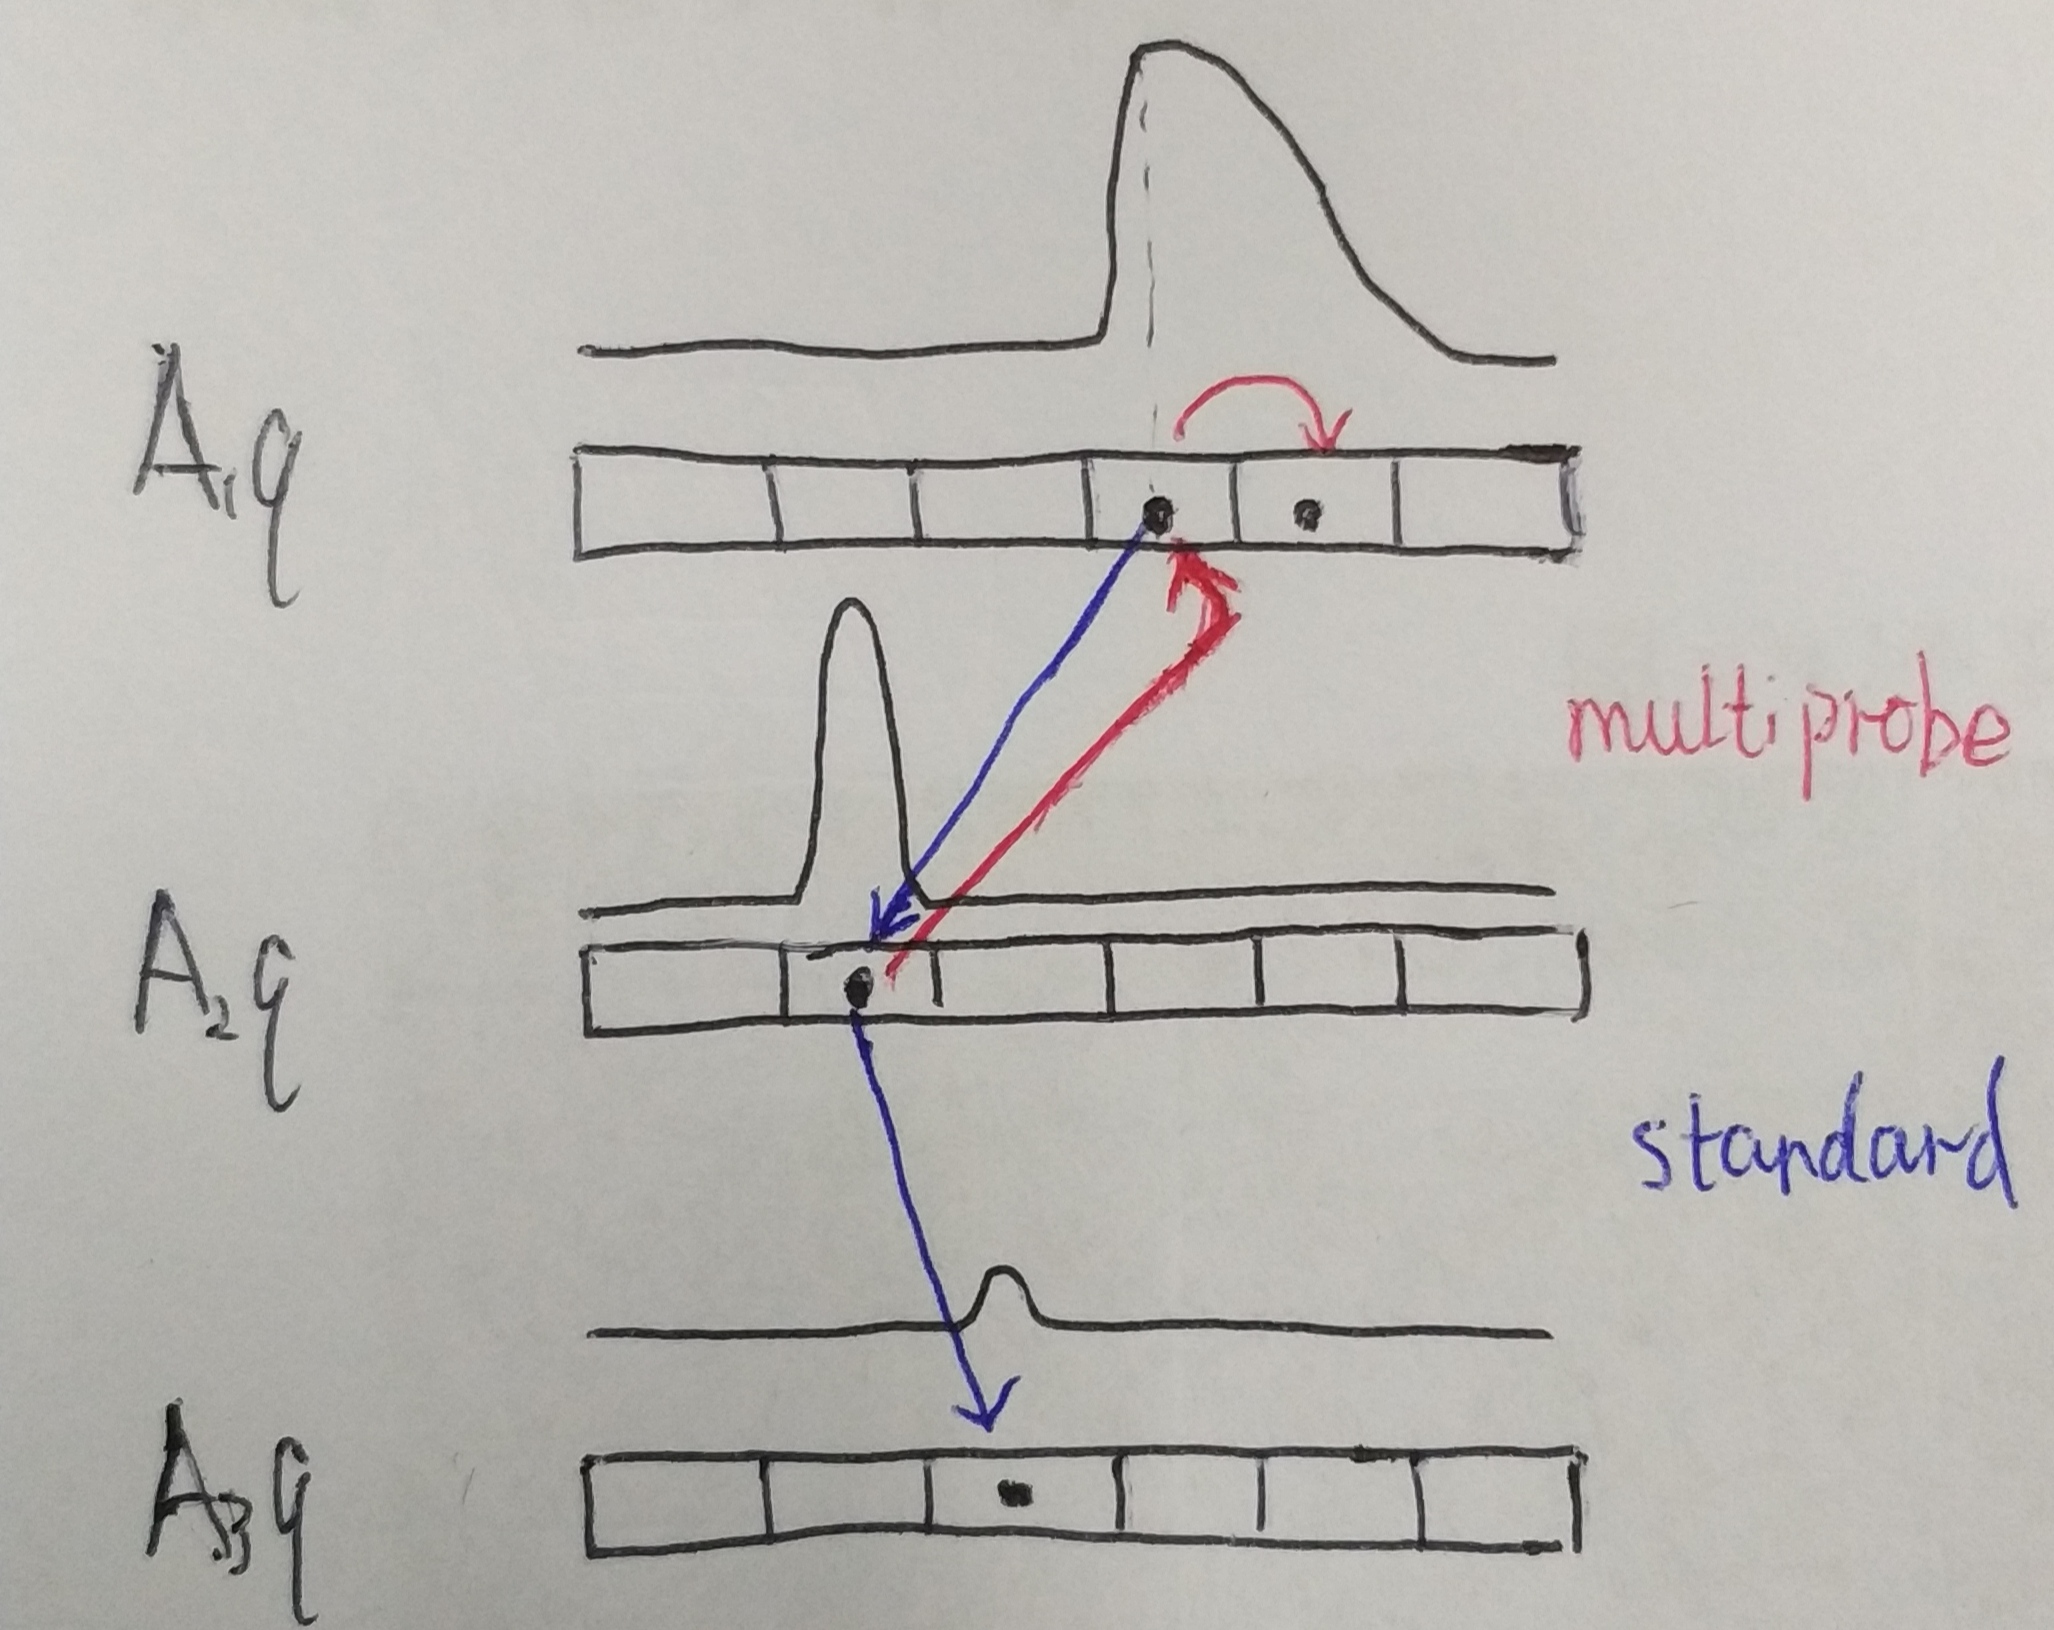 A₁q
multiprobe
A₂q
standard
A₃q